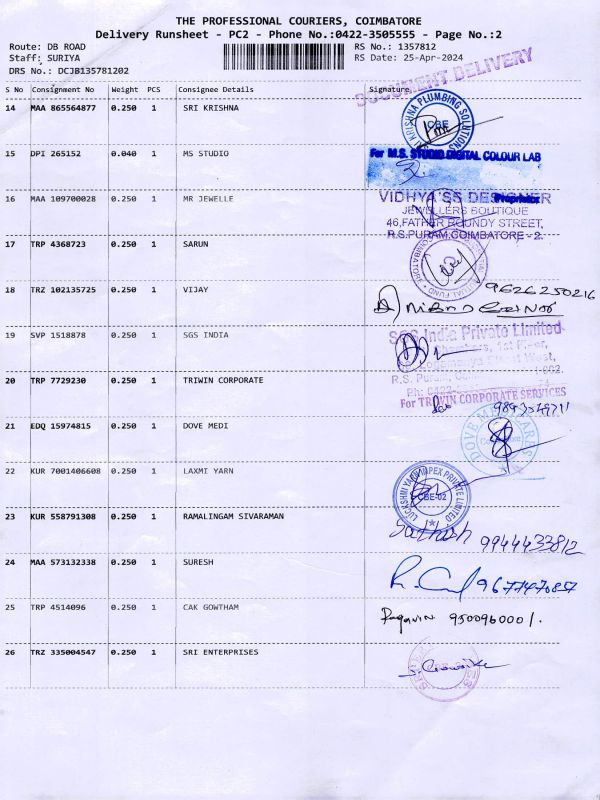 THE PROFESSIONAL COURIERS, COIMBATORE
Delivery Runsheet - PC2 - Phone No.:0422-3505555 - Page No.:2
Route: DB ROAD
Staff: SURIYA
DRS No.: DCJB135781202
RS No.: 1357812
RS Date: 25-Apr-2024
DOCUMENT DELIVERY
S No Consignment No Weight PCS Consignee Details Signature
14 MAA 865564877 0.250 1 SRI KRISHNA
KRISHNA PLUMBING SOLUTIONS CBE
15 DPI 265152 0.040 1 MS STUDIO
For M.S. STUDIO DIGITAL COLOUR LAB
Proprietor
16 MAA 109700028 0.250 1 MR JEWELLE
VIDHYA'SS DESIGNER
JEWELLERS BOUTIQUE
46,FATHER ROUNDY STREET,
R.S.PURAM,COIMBATORE - 2.
17 TRP 4368723 0.250 1 SARUN
18 TRZ 102135725 0.250 1 VIJAY
9626250216
19 SVP 1518878 0.250 1 SGS INDIA
SGS India Private Limited
1st Floor,
West,
R.S. Puram,
20 TRP 7729230 0.250 1 TRIWIN CORPORATE
For TRIWIN CORPORATE SERVICES
21 EDQ 15974815 0.250 1 DOVE MEDI
22 KUR 7001406608 0.250 1 LAXMI YARN
CBE-02
23 KUR 558791308 0.250 1 RAMALINGAM SIVARAMAN
Sathish 9944433812
24 MAA 573132338 0.250 1 SURESH
25 TRP 4514096 0.250 1 CAK GOWTHAM
26 TRZ 335004547 0.250 1 SRI ENTERPRISES